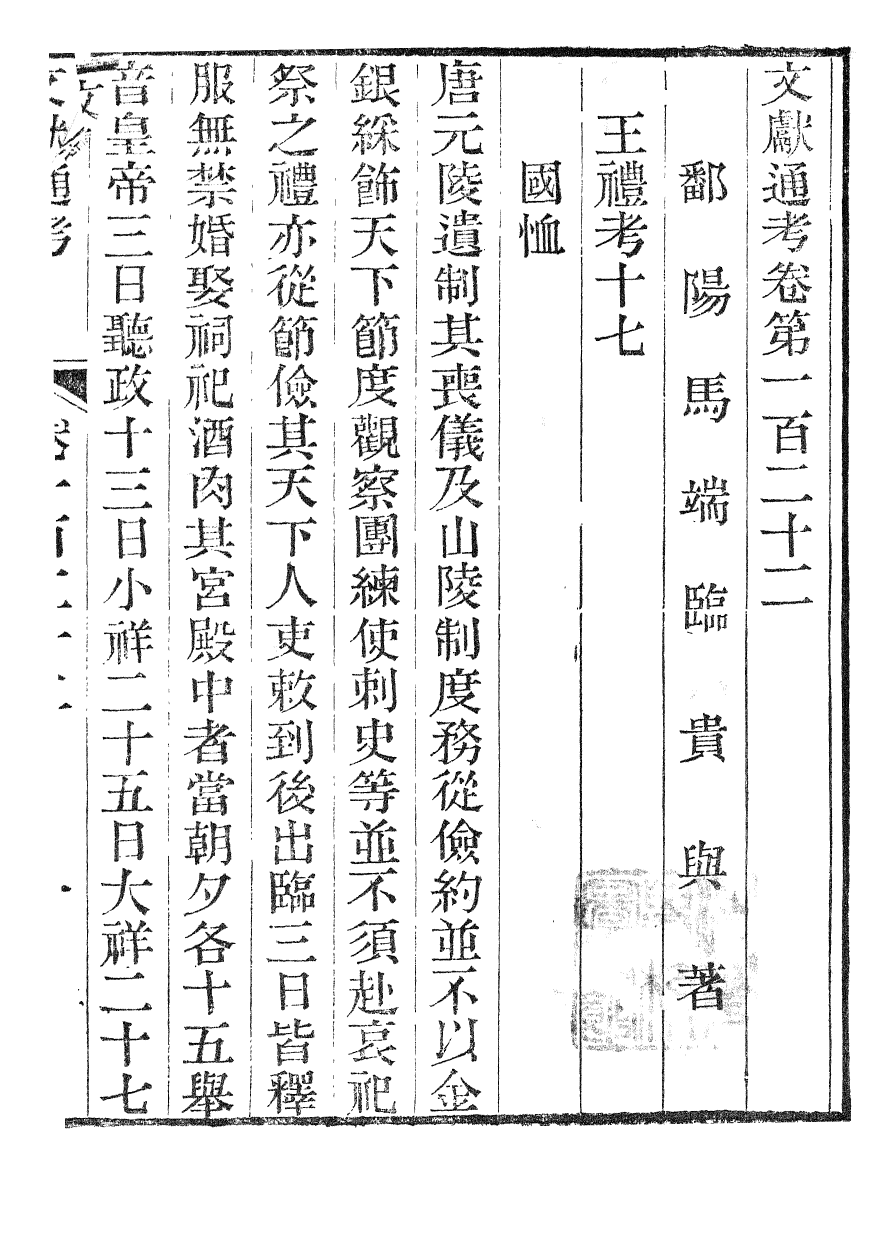 文獻通考卷第一百二十二
鄱陽馬端臨貴與著
王禮考十七
國恤
唐元陵遺制其喪儀及山陵制度務從儉約並不以金
銀綵飾天下節度觀察團練使刺史等並不須赴哀祀
祭之禮亦從節儉其天下人吏敕到後出臨三日皆釋
服無禁婚娶祠祀酒肉其宮殿中者當朝夕各十五舉
音皇帝三日聽政十三日小祥二十五日大祥二十七
文獻通考 卷一百二十二